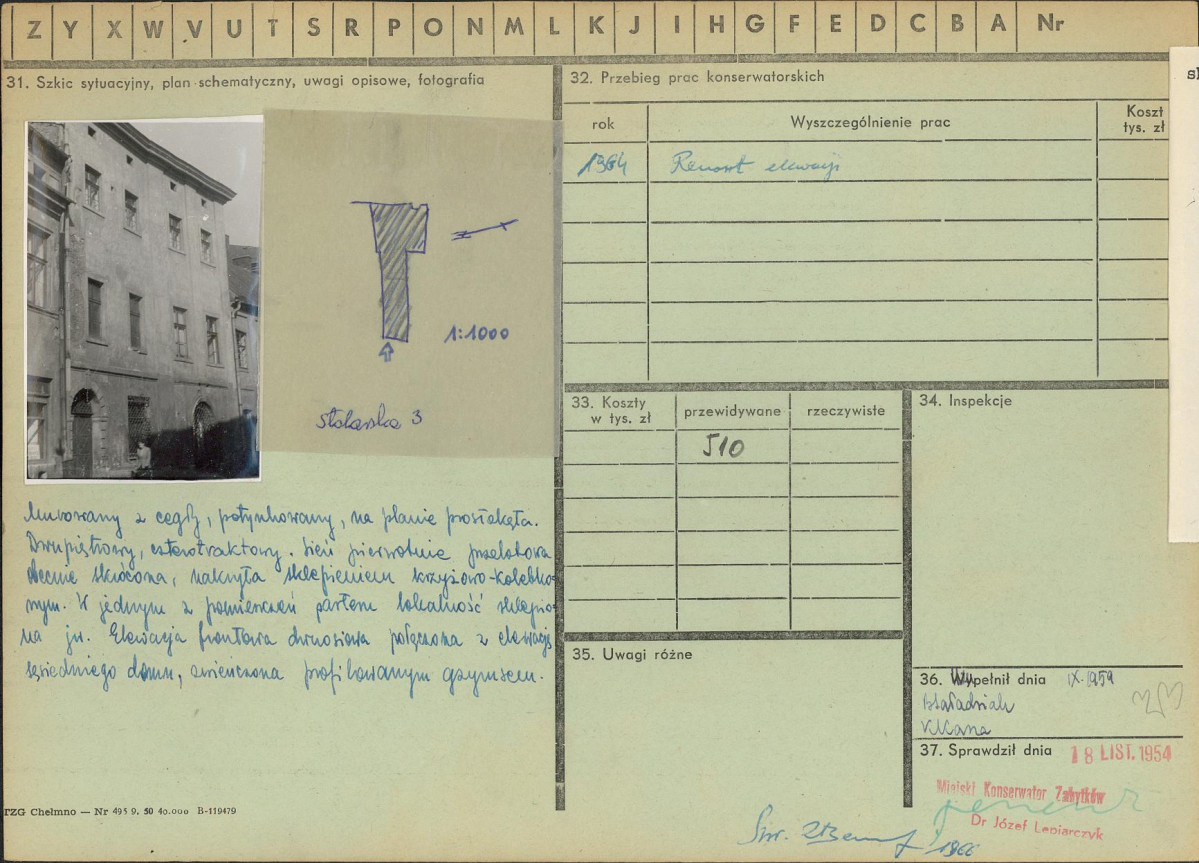 Z Y X W V U T S R P O N M L K J I H G F E D C B A Nr
31. Szkic sytuacyjny, plan schematyczny, uwagi opisowe, fotografia
1:1000
Stolarska 3
Murowany z cegły, potynkowany, na planie prostokąta.
Dwupiętrowy, czterotraktowy. Sień pierwotnie przelotowa
obecnie skrócona, nakryta sklepieniem krzyżowo-kolebko-
wym. W jednym z pomieszczeń parteru lokalność sklepio-
na jw. Elewacja frontowa dwuosiowa połączona z elewacją
sąsiedniego domu, zwieńczona profilowanym gzymsem.
TZG Chełmno — Nr 495 9. 50 40.000 B-119479
32. Przebieg prac konserwatorskich
rok
Wyszczególnienie prac
Koszt
tys. zł
1964 Remont elewacji
33. Koszty
w tys. zł
przewidywane
rzeczywiste
510
34. Inspekcje
35. Uwagi różne
36. Wypełnił dnia IX.1959
37. Sprawdził dnia 18 LIST. 1954
Miejski Konserwator Zabytków
Dr Józef Lepiarczyk
1966